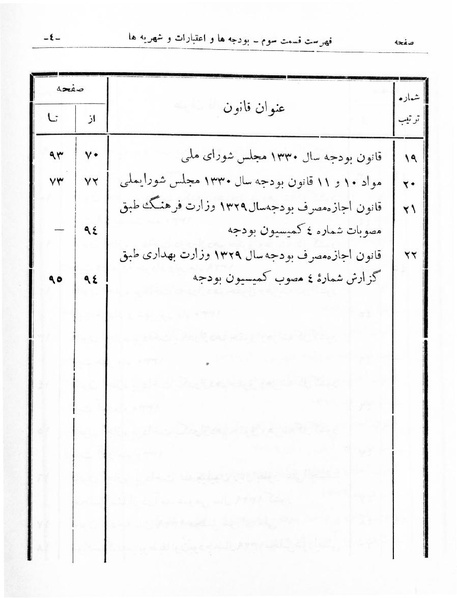 صفحه فهرست قسمت سوم - بودجه ها و اعتبارات و شهریه ها -٤-
شماره ترتیب عنوان قانون صفحه
از تا
۱۹ قانون بودجه سال ۱۳۳۰ مجلس شورای ملی ۷۰ ۹۳
۲۰ مواد ۱۰ و ۱۱ قانون بودجه سال ۱۳۳۰ مجلس شورایملی ۷۲ ۷۳
۲۱ قانون اجازه مصرف بودجه سال ۱۳۲۹ وزارت فرهنگ طبق
مصوبات شماره ٤ کمیسیون بودجه ۹٤ —
۲۲ قانون اجازه مصرف بودجه سال ۱۳۲۹ وزارت بهداری طبق
گزارش شمارهٔ ٤ مصوب کمیسیون بودجه ۹٤ ۹۵